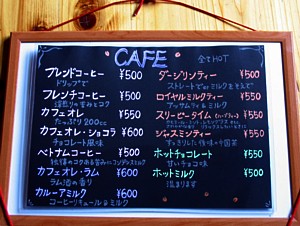 CAFE
全てHOT
ブレンドコーヒー ¥500
ドリップで
フレンチコーヒー ¥500
深煎り 苦みとコク
カフェオレ ¥550
たっぷり200cc
カフェオレ・ショコラ ¥600
チョコレート風味
ベトナムコーヒー ¥500
カフェオレ・ラム ¥600
ラム酒の香り
カルーアミルク ¥600
コーヒーリキュール&ミルク
ダージリンティー ¥500
ストレートでorミルクを添えて
ロイヤルミルクティー ¥550
アッサムティ&ミルク
スリーピータイム ¥550
ジャスミンティー ¥550
すっきりした後味の中国茶
ホットチョコレート ¥550
甘いチョコ味
ホットミルク ¥500
温まります